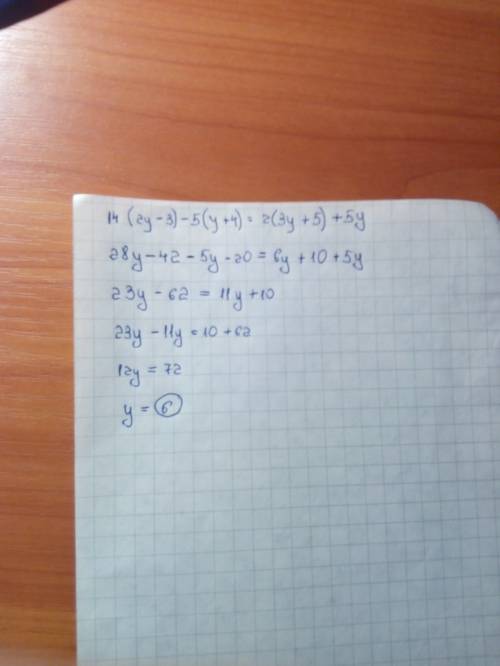 14 (2y-3)-5(y+4)=2(3y+5)+5y
28y-42-5y-20=6y+10+5y
23y-62=11y+10
23y-11y=10+62
12y=72
y=6